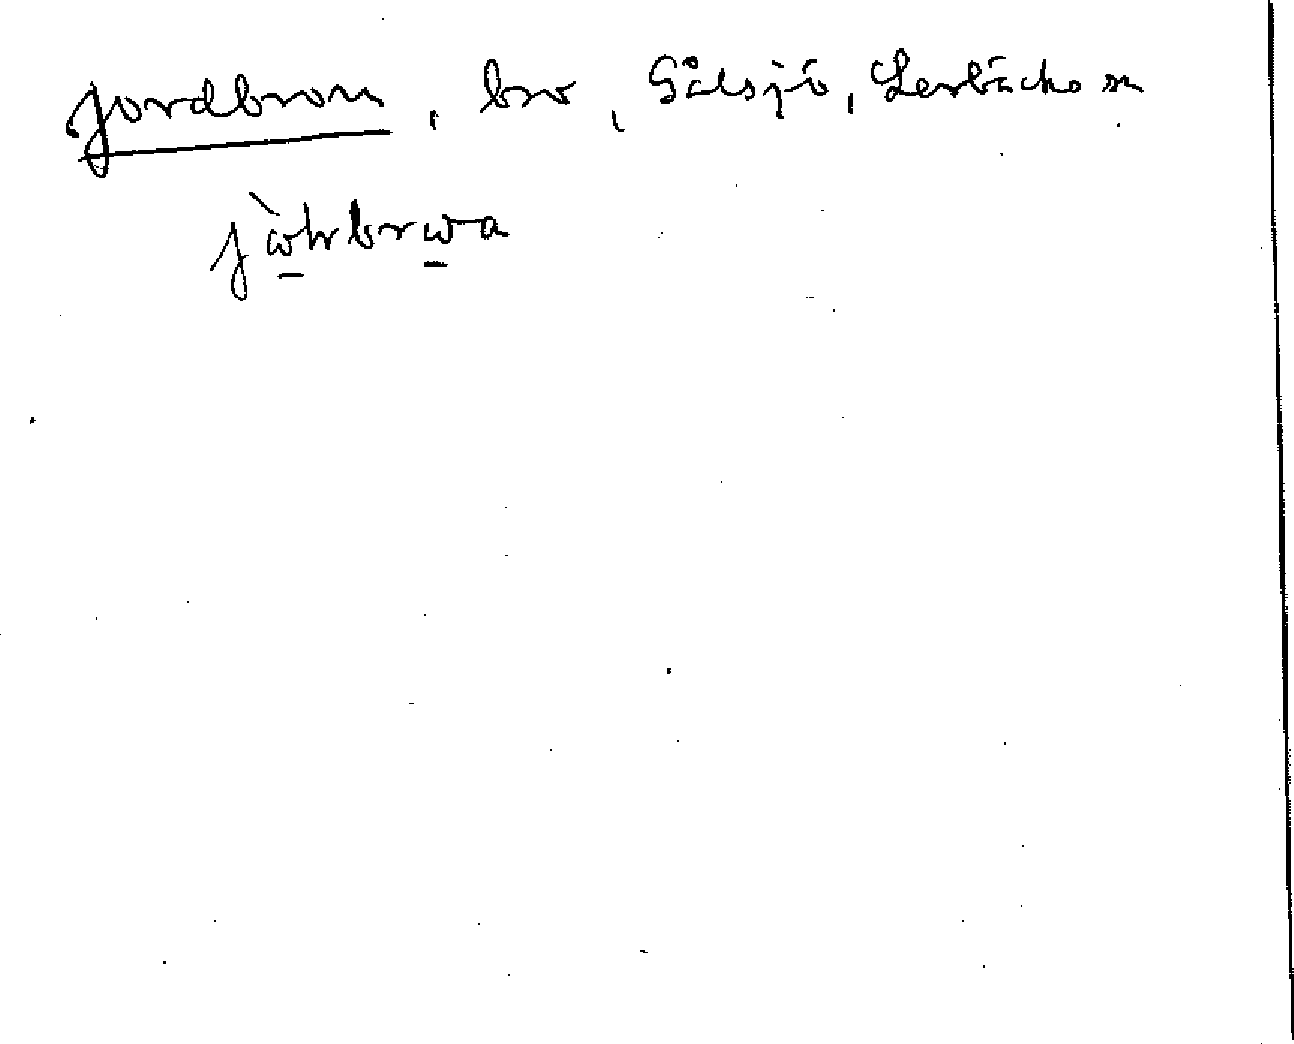 Jordbron, bro, Gålsjö, Lerbäcks sn
jὼ̲hrbrω̲a